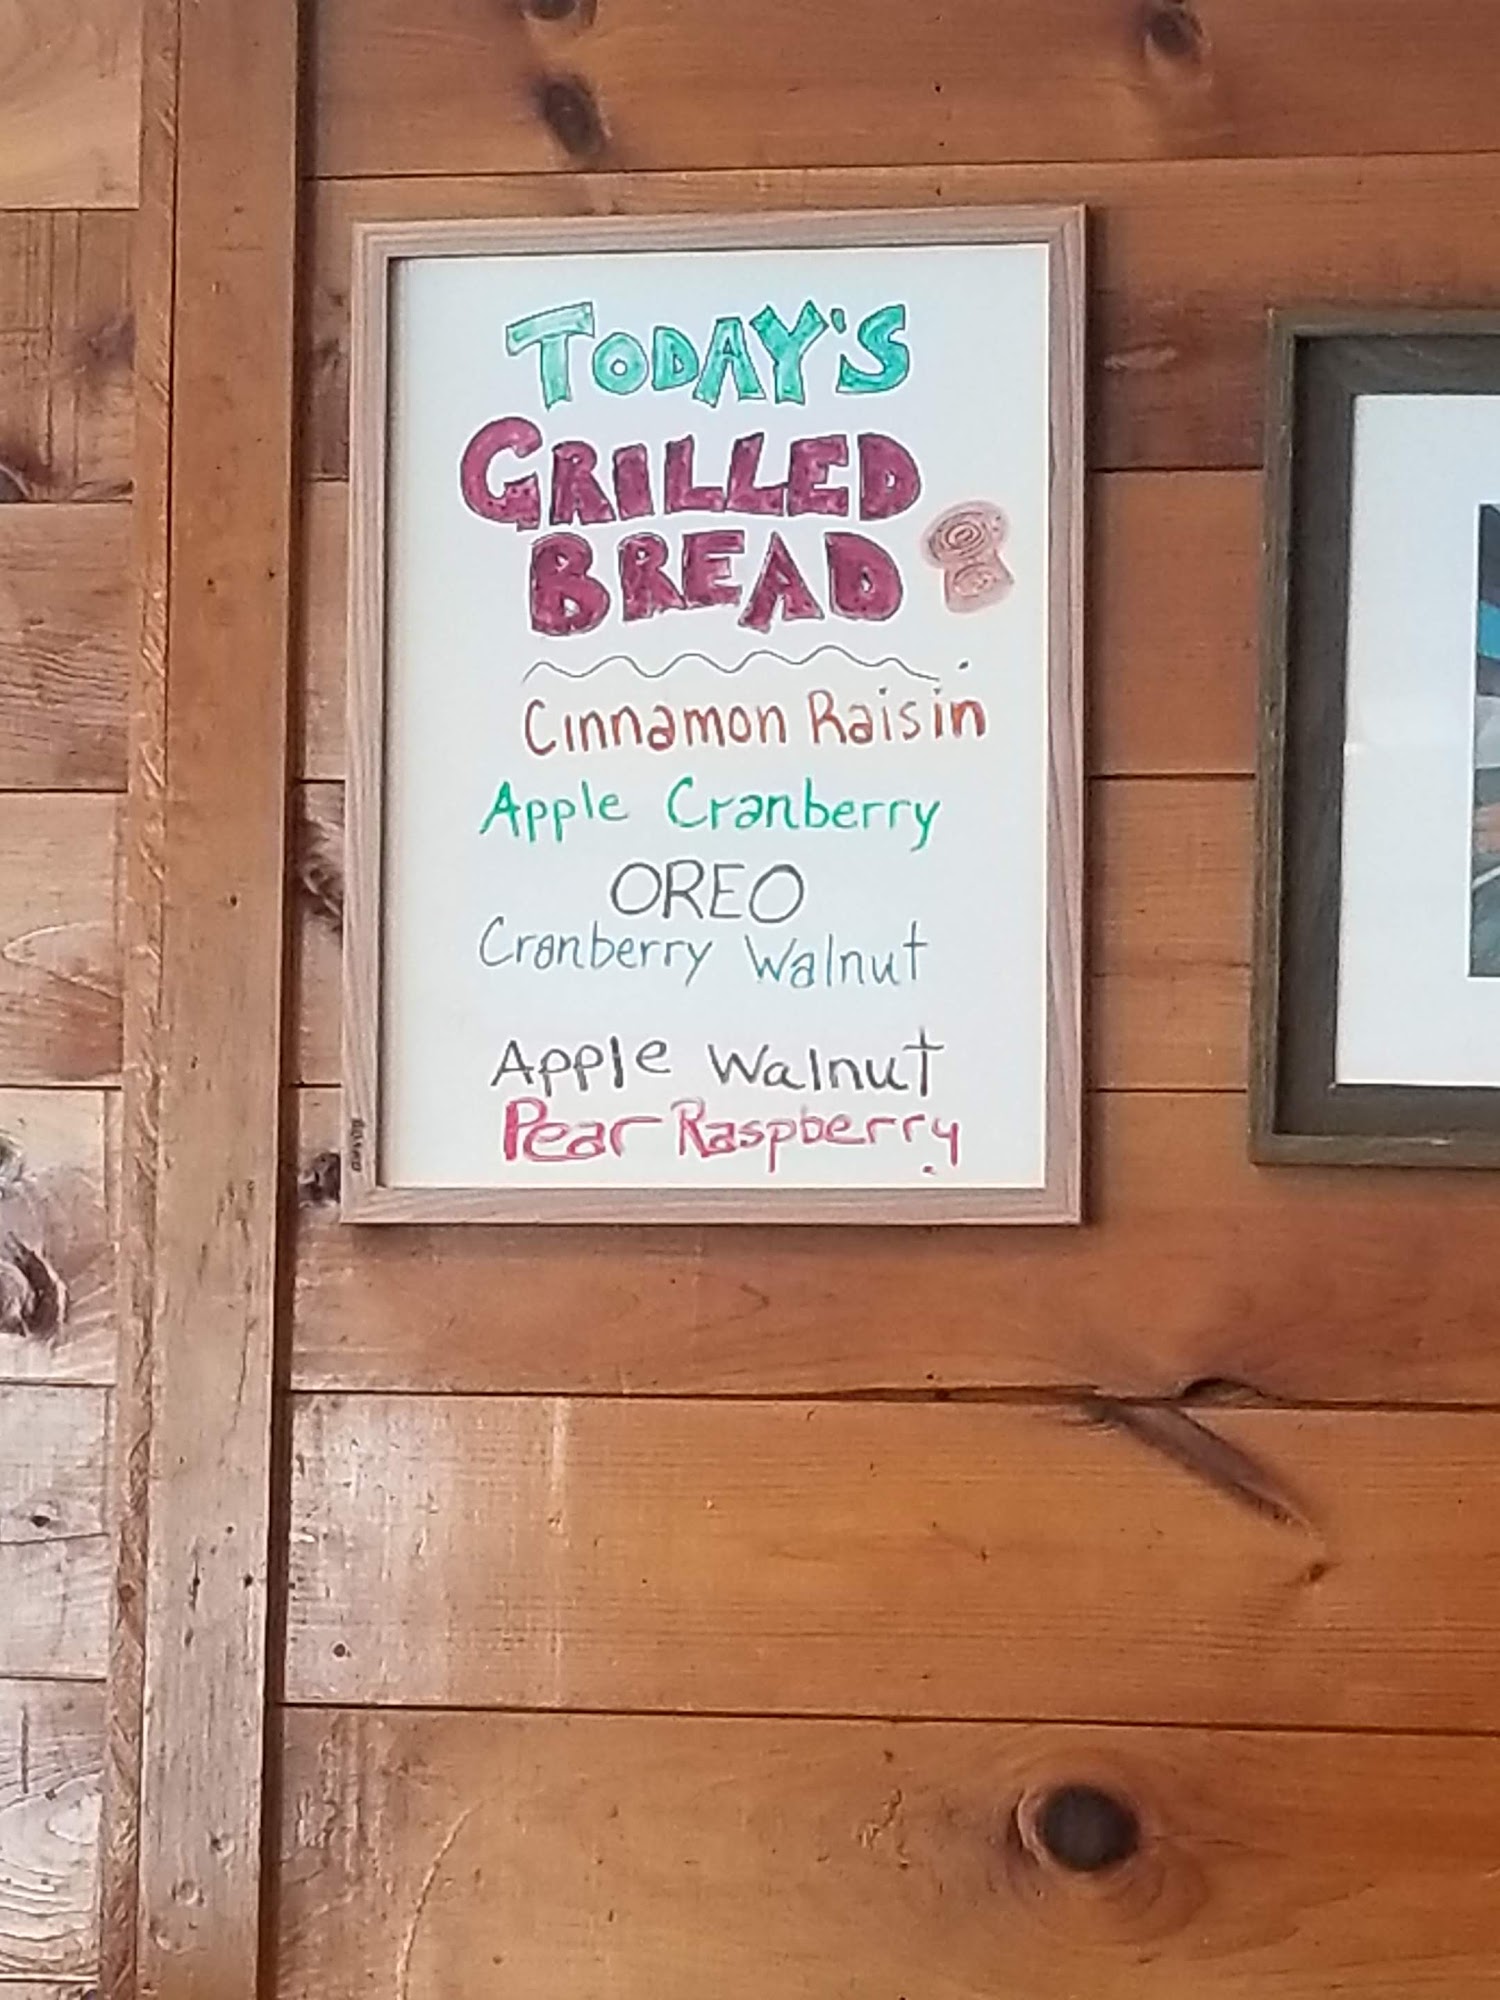 TODAY'S
GRILLED
BREAD
Cinnamon Raisin
Apple Cranberry
OREO
Cranberry Walnut
Apple Walnut
Pear Raspberry